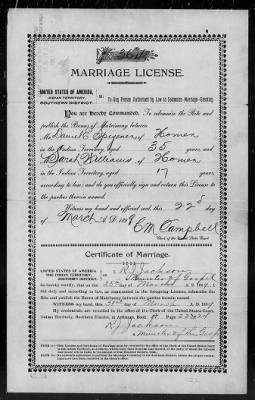 MARRIAGE LICENSE.
UNITED STATES OF AMERICA,
INDIAN TERRITORY,
SOUTHERN DISTRICT.
ss:
To Any Person Authorized by Law to Solemnize Marriage—Greeting:
You are Hereby Commanded, To solemnize the Rite and
publish the Banns of Matrimony between
Mr of Homer
in the Indian Territory, aged 35 years, and
M Sarah Williams of Homer
in the Indian Territory, aged 17 years,
according to law, and do you officially sign and return this License to
the parties therein named.
Witness my hand and official seal, this 22 day
of March A. D. 189
C M Campbell
Clerk of the United States Court.
Certificate of Marriage.
UNITED STATES OF AMERICA,
THE INDIAN TERRITORY,
SOUTHERN DISTRICT.
I, R J Jackson
a Minister of Gospel
do hereby certify, that on the day of March A. D. 189
did duly and according to law, as commanded in the foregoing License, solemnize the
Rite and publish the Banns of Matrimony between the parties therein named.
WITNESS my hand, this day of March A. D. 189
My credentials are recorded in the office of the Clerk of the United States Court,
Indian Territory, Southern District, at Ardmore, Book
R J Jackson
a Minister of the Gospel